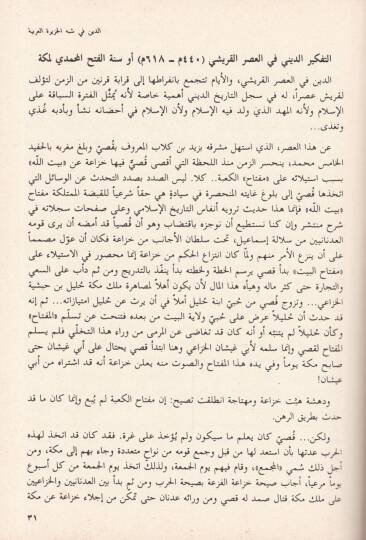 الدين في شبه الجزيرة العربية
التفكير الديني في العصر القريشي (٤٤٠م ــ ٦١٨م) أو سنة الفتح المحمدي لمكة
الدين في العصر القريشي، والأيام تتجمع بانفراطها إلى قرابة قرنين من الزمن لتؤلف
لقريش عصراً، له في سجل التاريخ الديني أهمية خاصة لأنه يُمثّل الفترة السباقة على
الإسلام ولأنه المهد الذي ولد فيه الإسلام ولأن الإسلام في أحضانه نشأ وبأدبه غُذي
وتغذى...
عن هذا العصر، الذي استهل مشرقه بزيد بن كلاب المعروف بقُصيّ وبلغ مغربه بالحفيد
الخامس محمد، ينحسر الزمن منذ اللحظة التي أقصى قُصيّ فيها خزاعة عن «بيت الله»
بسبب استيلائه على «مفتاح» الكعبة.. كلا. ليس الصدد بصدد التحدث عن الوسائل التي
اتخذها قُصيّ إلى بلوغ غايته المنحصرة في سيادةٍ هي حقاً شرعياً للقبضة الممتلكة مفتاح
«بيت الله» فإنما هذا حديث ترويه أنفاس التاريخ الإسلامي وعلى صفحات سجلاته في
شرح منتشر وإن كنا نستطيع أن نوجزه باقتضاب وهو أن قُصياً قد أمضه أن يرى قومه
العدنانيين من سلالة إسماعيل، تحت سلطان الأجانب من خزاعة فكان أن عوّل مصمماً
على أن ينزع الأمر منهم ولمّا كان انتزاع الحكم من خزاعة إنما محصور في الاستيلاء على
«مفتاح البيت» بدأ قصي يرسم الخطة ولخطته بدأ ينفّذ بالتدريج ومن ثم دأب على السعي
والتجارة حتى كثر ماله وهيأه هذا المال لأن يكون أهلاً لمصاهرة ملك مكة حُليل بن حبشية
الخزاعي... وتزوج قُصي من حُبيّ ابنة حُليل أملاً في أن يرث عن حُليل امتيازاته... ثم إنه
قد حدث أن حُليلاً عرض على حُبيّ ولاية البيت من بعده فتنحت عن تسلّم «المفتاح»
وكأن حُليلاً لم يتنبّه أو أنه كان قد تغاضى عن المرمى من وراء هذا التخلّي فلم يسلم
المفتاح لقصي وإنما سلمه لأبي غبشان الخزاعي. وهنا ابتدأ قصي يحتال على أبي غبشان حتى
صابح مكة يوماً وفي يده هذا المفتاح والصوت منه يعلن خزاعة أنه قد اشتراه من أبي
غبشان!
ودهشة هبّت خزاعة ومهتاجة انطلقت تصيح: إن مفتاح الكعبة لم يُبع وإنما كان ما قد
حدث بطريق الرهن.
ولكن... قُصيّ كان يعلم ما سيكون ولم يُؤخذ على غرة. فقد كان قد اتخذ لهذه
الحرب عدتها بأن استعد لها من قبل وجمع قومه من نواحٍ متعددة وجاء بهم إلى مكة، ومن
أجل ذلك سُمي «المجمع»، وقام فيهم يوم الجمعة، ولذلك اتخذ يوم الجمعة من كل أسبوع
يوماً مرعياً، أجاب صيحة خزاعة الفزعة بصيحة الحرب ومن ثم بدأ بين العدنانيين والخزاعيين
على ملك مكة قتال صمد له قصي ومن ورائه عدنان حتى تمكّن من إجلاء خزاعة عن مكة
٣١